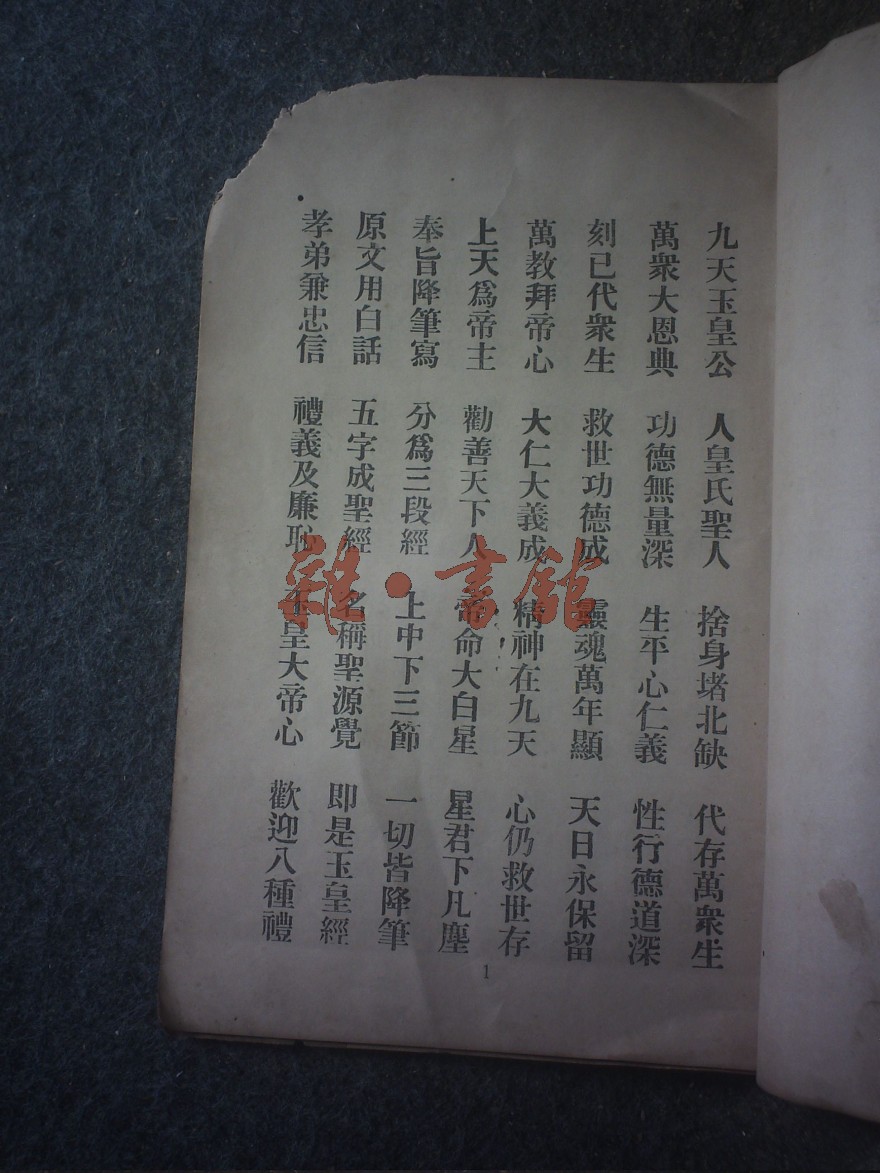 九天玉皇公　人皇氏聖人　捨身堵北缺　代存萬衆生
萬衆大恩典　功德無量深　生平心仁義　性行德道深
刻已代衆生　救世功德成　靈魂萬年顯　天日永保留
萬教拜帝心　大仁大義成　精神在九天　心仍救世存
上天爲帝主　勸善天下人　帝命大白星　星君下凡塵
奉旨降筆寫　分爲三段經　上中下三節　一切皆降筆
原文用白話　五字成聖經　名稱聖源覺　即是玉皇經
孝弟兼忠信　禮義及廉恥　玉皇大帝心　歡迎八種禮
1
雜·書舘